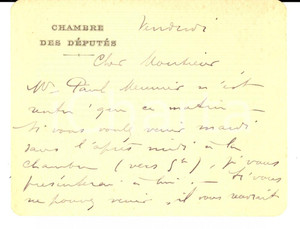 CHAMBRE
DES DÉPUTÉS
Vendredi
Cher Monsieur
Mr Paul Meunier n'est
rentré que ce matin —
Si vous voulez venir mardi
dans l'après midi à la
chambre (vers 5h), je vous
présenterai à lui. — Si vous
ne pouvez venir, il vous